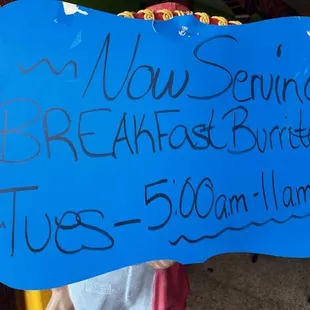 ~ Now Servin
BREAKFast Burrit
Tues - 5:00am - 11am